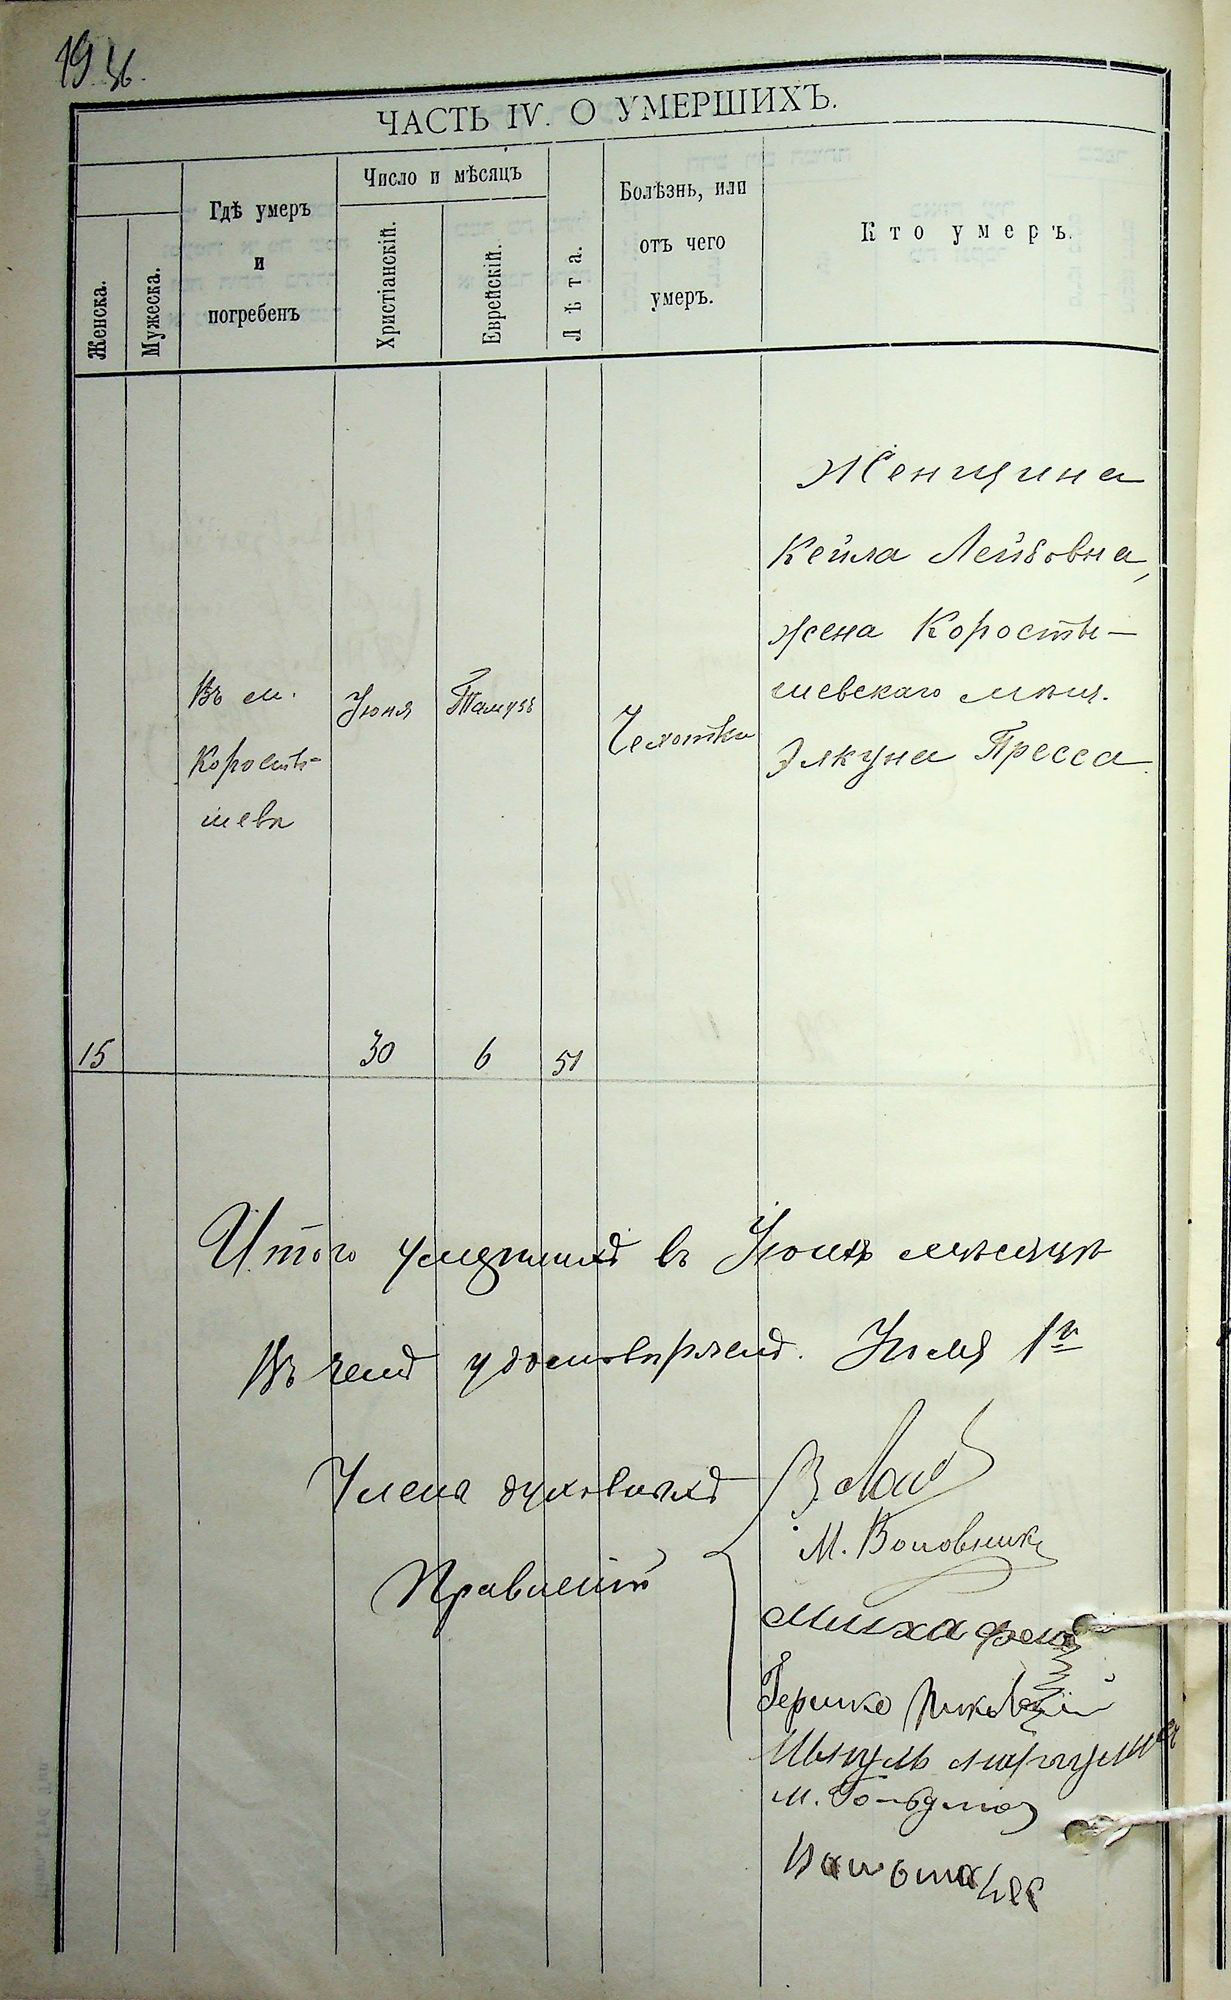 19 36.
ЧАСТЬ IV. О УМЕРШИХЪ.
Женска.
Мужеска.
Гдѣ умеръ
и
погребенъ
Число и мѣсяцъ
Христіанскій.
Еврейскій.
Лѣта.
Болѣзнь, или
отъ чего
умеръ.
Кто умеръ.
15
Въ м.
Коросты-
шевѣ
Іюня
30
Тамузъ
6
51
Чехотки
Женщина
Кейла Лейбовна,
жена Коросты-
шевскаго мѣщ.
Элкуна Пресса.
Итого умершихъ въ Іюнѣ мѣсяцѣ
Въ чемъ удостовѣряемъ. Іюля 1
Члены духовныхъ
Правленій
М. Воловникъ
Гершко
Шмуль